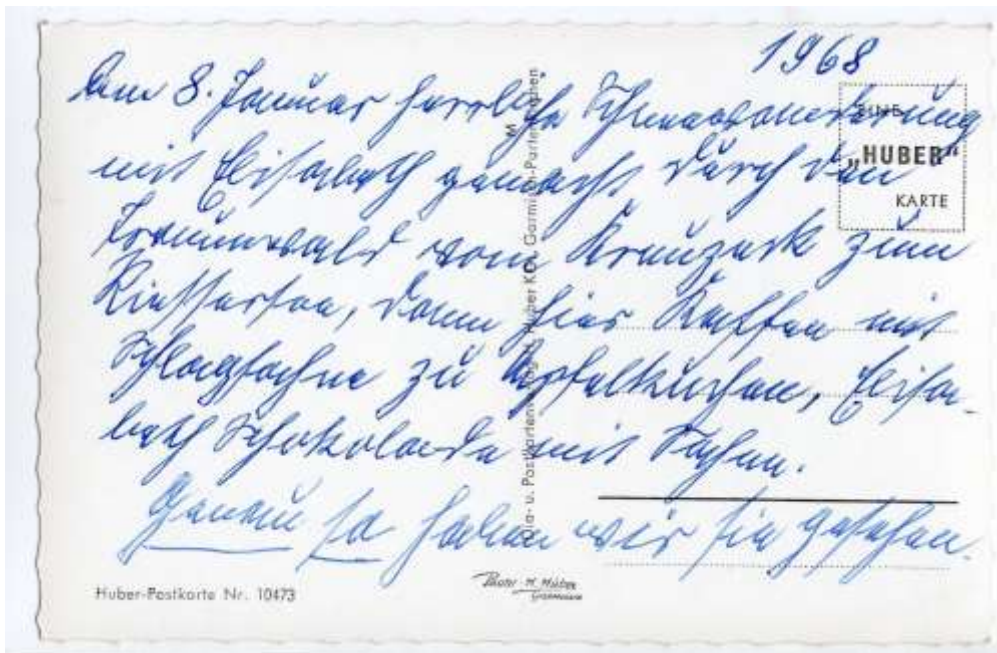 1968
Am 8. Januar herrliche Schneewanderung
mit Elisabeth gemacht durch den
Traumwald vom Kreuzeck zum
Riessersee, dann hier Kaffee mit
Schlagsahne zu Apfelkuchen, Elisa-
beth Schokolade mit Sahne.
Genau so haben wir sie gesehen.
EINE
„HUBER“
KARTE
Dia- u. Postkartenverlag H. Huber KG, Garmisch-Partenkirchen
M
Huber-Postkarte Nr. 10473
Photo H. Huber
Garmisch